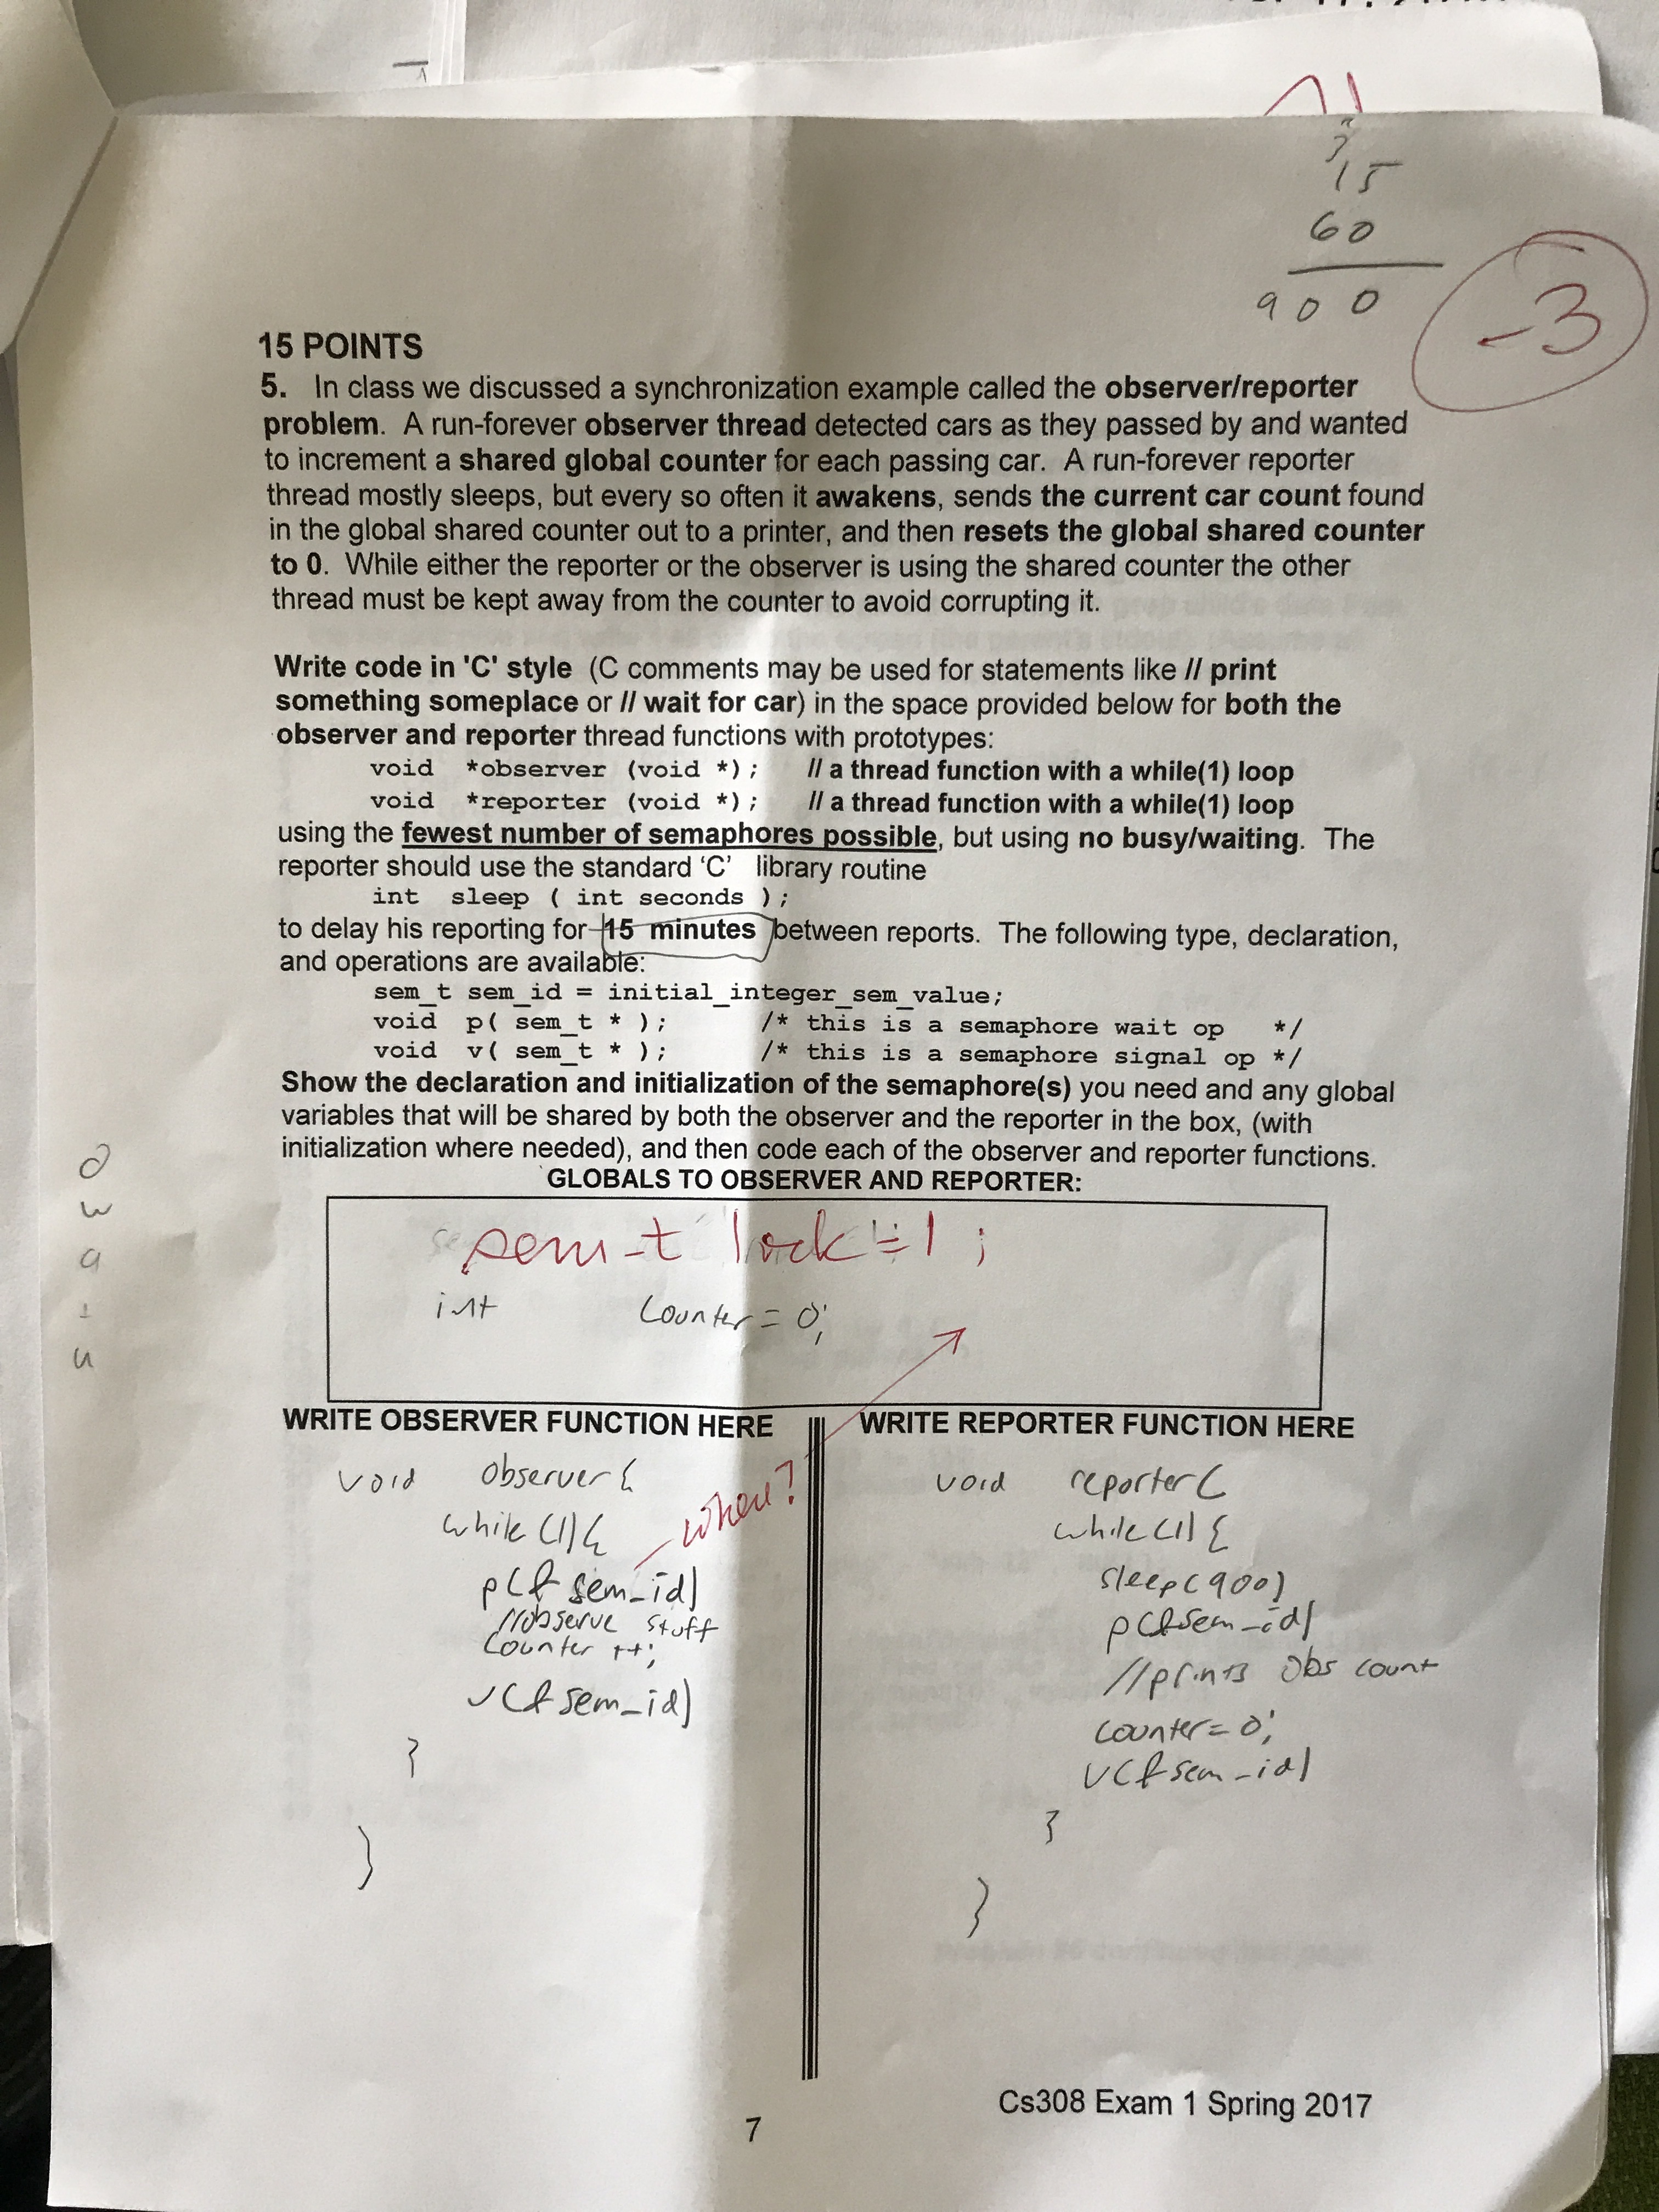 15
60
9 0 0
-3
15 POINTS
5. In class we discussed a synchronization example called the observer/reporter
problem. A run-forever observer thread detected cars as they passed by and wanted
to increment a shared global counter for each passing car. A run-forever reporter
thread mostly sleeps, but every so often it awakens, sends the current car count found
in the global shared counter out to a printer, and then resets the global shared counter
to 0. While either the reporter or the observer is using the shared counter the other
thread must be kept away from the counter to avoid corrupting it.
Write code in 'C' style (C comments may be used for statements like // print
something someplace or // wait for car) in the space provided below for both the
observer and reporter thread functions with prototypes:
void *observer (void *); // a thread function with a while(1) loop
void *reporter (void *); // a thread function with a while(1) loop
using the fewest number of semaphores possible, but using no busy/waiting. The
reporter should use the standard ‘C’ library routine
int sleep ( int seconds );
to delay his reporting for 15 minutes between reports. The following type, declaration,
and operations are available:
sem_t sem_id = initial_integer_sem_value;
void p( sem_t * ); /* this is a semaphore wait op */
void v( sem_t * ); /* this is a semaphore signal op */
Show the declaration and initialization of the semaphore(s) you need and any global
variables that will be shared by both the observer and the reporter in the box, (with
initialization where needed), and then code each of the observer and reporter functions.
GLOBALS TO OBSERVER AND REPORTER:
sem_t lock = 1 ;
int counter = 0;
WRITE OBSERVER FUNCTION HERE
void observer {
while (1) {
p(& sem_id)
//observe stuff
counter ++;
v(& sem_id)
}
}
where?
WRITE REPORTER FUNCTION HERE
void reporter {
while (1) {
sleep(900)
p(&sem_id)
//prints obs count
counter = 0;
v(& sem_id)
}
}
7
Cs308 Exam 1 Spring 2017